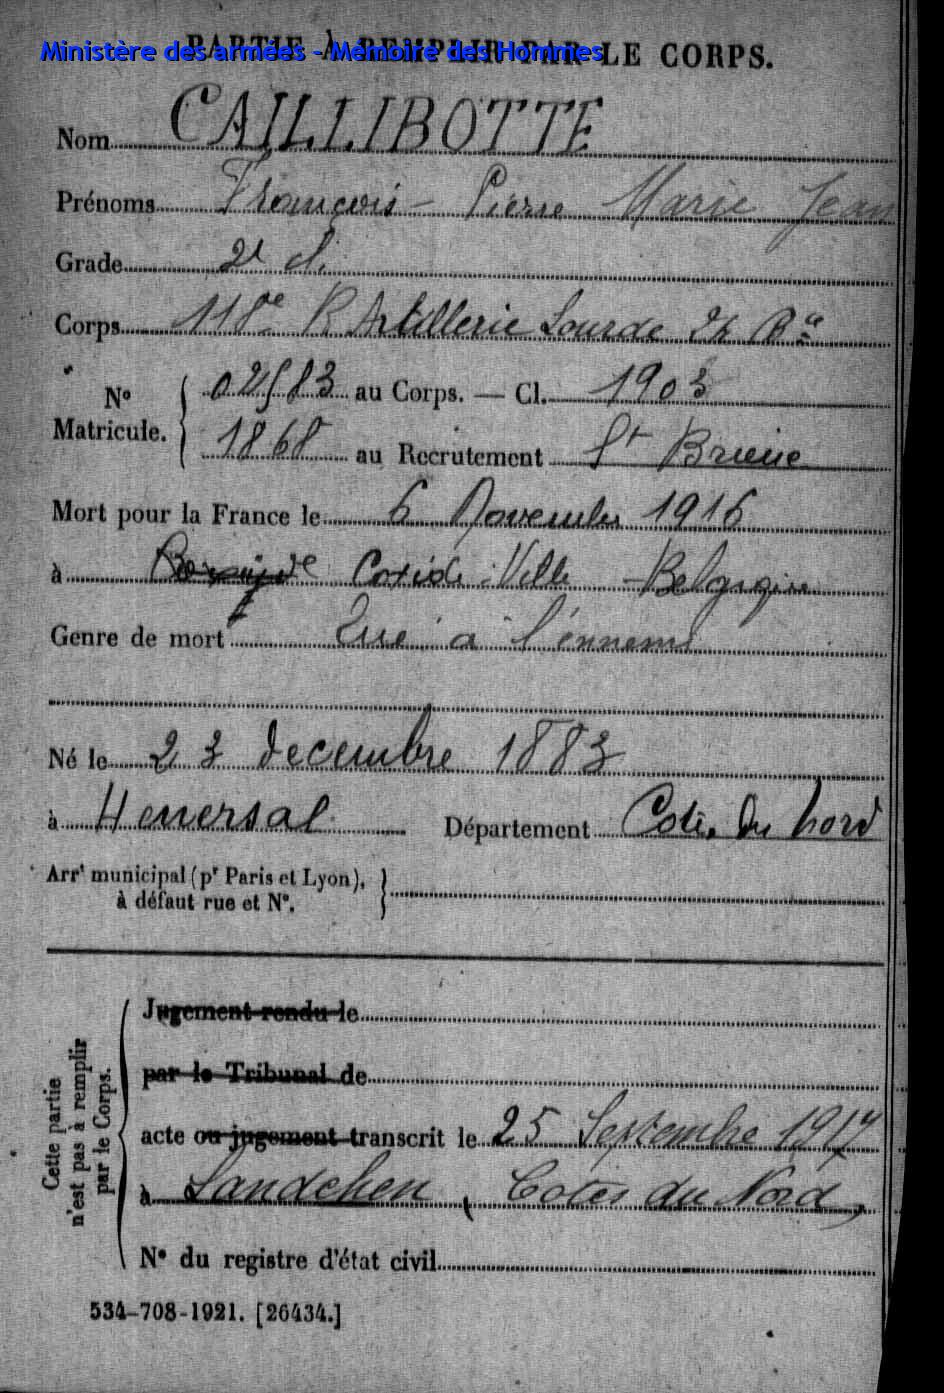 PARTIE À REMPLIR PAR LE CORPS.
Ministère des armées - Mémoire des Hommes
Nom CAILLIBOTTE
Prénoms François - Pierre Marie Jean
Grade 2e cl.
Corps 118e R Artillerie Lourde 2h Bie
No Matricule. { 02583 au Corps. — Cl. 1903
1868 au Recrutement St Brieuc
Mort pour la France le 6 Novembre 1916
à Coxide-Ville - Belgique
Genre de mort Tué à l'ennemi
Né le 23 decembre 1883
à Henensal Département Cotes du nord
Arrt municipal (pr Paris et Lyon),
à défaut rue et No.
Cette partie
n'est pas à remplir
par le Corps.
Jugement rendu le
par le Tribunal de
acte ou jugement transcrit le 25 Septembre 1917
à Landehen (Cotes du Nord)
No du registre d'état civil
534-708-1921. [26434.]